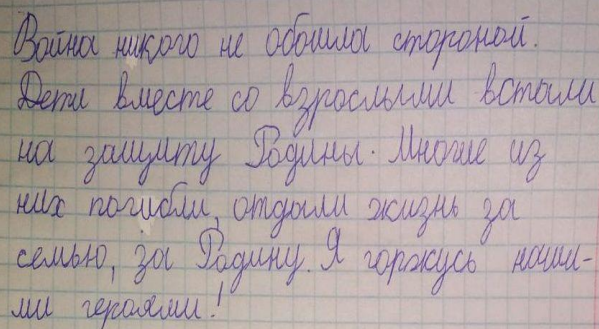 Война никого не обошла стороной.
Дети вместе со взрослыми встали
на защиту Родины. Многие из
них погибли, отдали жизнь за
семью, за Родину. Я горжусь наши-
ми героями!